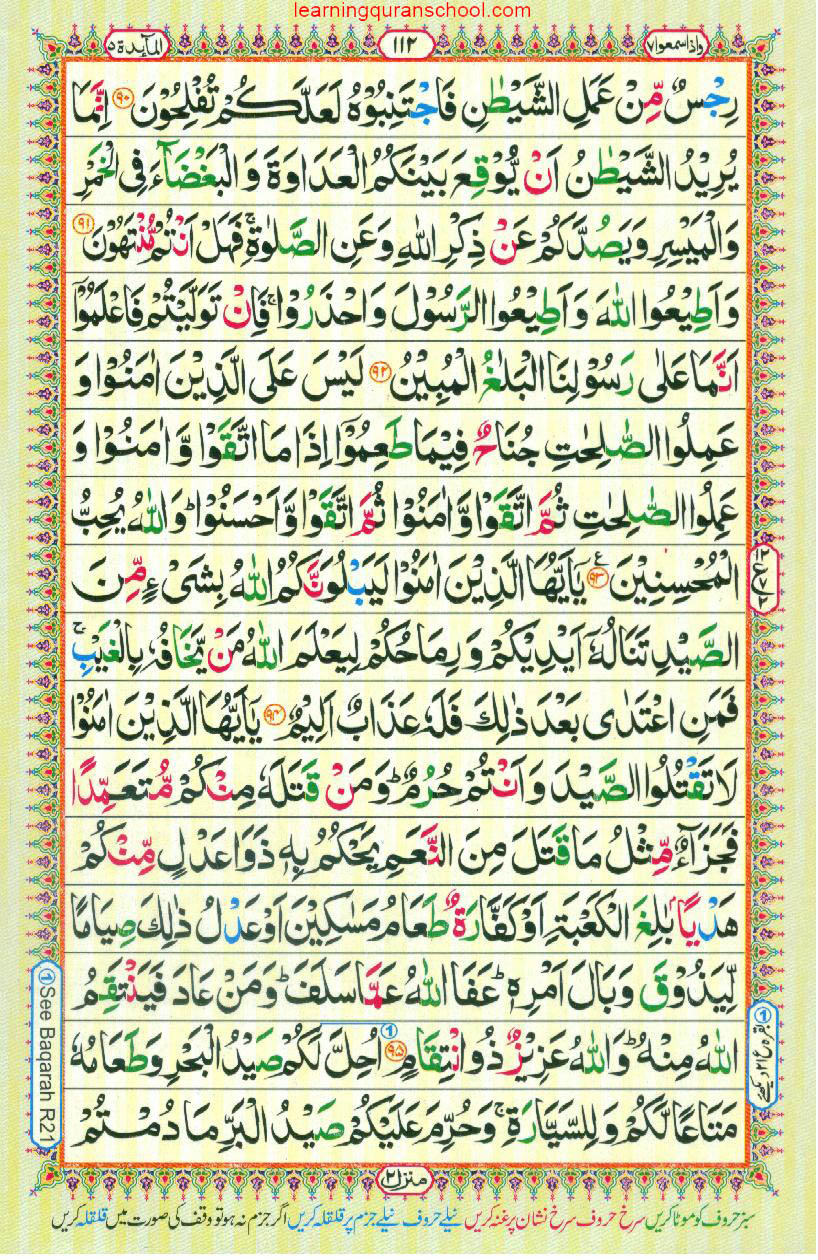 learningquranschool.com
واذاسمعوا۷
۱۱۲
المآئدة۵
رِجْسٌ مِّنْ عَمَلِ الشَّيْطٰنِ فَاجْتَنِبُوْهُ لَعَلَّكُمْ تُفْلِحُوْنَ ﴿۹۰﴾ اِنَّمَا
يُرِيْدُ الشَّيْطٰنُ اَنْ يُّوْقِعَ بَيْنَكُمُ الْعَدَاوَةَ وَ الْبَغْضَآءَ فِى الْخَمْرِ
وَالْمَيْسِرِ وَيَصُدَّكُمْ عَنْ ذِكْرِ اللّٰهِ وَعَنِ الصَّلٰوةِ ۚ فَهَلْ اَنْتُمْ مُّنْتَهُوْنَ ﴿۹۱﴾
وَاَطِيْعُوا اللّٰهَ وَاَطِيْعُوا الرَّسُوْلَ وَاحْذَرُوْا ۚ فَاِنْ تَوَلَّيْتُمْ فَاعْلَمُوْٓا
اَنَّمَا عَلٰى رَسُوْلِنَا الْبَلٰغُ الْمُبِيْنُ ﴿۹۲﴾ لَيْسَ عَلَى الَّذِيْنَ اٰمَنُوْا وَ
عَمِلُوا الصّٰلِحٰتِ جُنَاحٌ فِيْمَا طَعِمُوْٓا اِذَا مَا اتَّقَوْا وَّاٰمَنُوْا وَ
عَمِلُوا الصّٰلِحٰتِ ثُمَّ اتَّقَوْا وَّاٰمَنُوْا ثُمَّ اتَّقَوْا وَّاَحْسَنُوْا ؕ وَاللّٰهُ يُحِبُّ
الْمُحْسِنِيْنَ ﴿۹۳﴾ يٰٓاَيُّهَا الَّذِيْنَ اٰمَنُوْا لَيَبْلُوَنَّكُمُ اللّٰهُ بِشَىْءٍ مِّنَ
الصَّيْدِ تَنَالُهٗٓ اَيْدِيْكُمْ وَرِمَاحُكُمْ لِيَعْلَمَ اللّٰهُ مَنْ يَّخَافُهٗ بِالْغَيْبِ ۚ
فَمَنِ اعْتَدٰى بَعْدَ ذٰلِكَ فَلَهٗ عَذَابٌ اَلِيْمٌ ﴿۹۴﴾ يٰٓاَيُّهَا الَّذِيْنَ اٰمَنُوْا
لَا تَقْتُلُوا الصَّيْدَ وَاَنْتُمْ حُرُمٌ ؕ وَمَنْ قَتَلَهٗ مِنْكُمْ مُّتَعَمِّدًا
فَجَزَآءٌ مِّثْلُ مَا قَتَلَ مِنَ النَّعَمِ يَحْكُمُ بِهٖ ذَوَا عَدْلٍ مِّنْكُمْ
هَدْيًاۢ بٰلِغَ الْكَعْبَةِ اَوْ كَفَّارَةٌ طَعَامُ مَسٰكِيْنَ اَوْ عَدْلُ ذٰلِكَ صِيَامًا
لِّيَذُوْقَ وَبَالَ اَمْرِهٖ ؕ عَفَا اللّٰهُ عَمَّا سَلَفَ ؕ وَمَنْ عَادَ فَيَنْتَقِمُ
اللّٰهُ مِنْهُ ؕ وَاللّٰهُ عَزِيْزٌ ذُو انْتِقَامٍ ﴿۹۵﴾ ① اُحِلَّ لَكُمْ صَيْدُ الْبَحْرِ وَطَعَامُهٗ
مَتَاعًا لَّكُمْ وَلِلسَّيَّارَةِ ۚ وَحُرِّمَ عَلَيْكُمْ صَيْدُ الْبَرِّ مَا دُمْتُمْ
① See Baqarah R21
① بقرہ ع۲۱ دیکھئے
منزل۲
سبز حروف کو موٹا کریں سرخ حروف سرخ نشان پر غنہ کریں نیلے حروف نیلے جزم پر قلقلہ کریں اگر جزم نہ ہو تو وقف کی صورت میں قلقلہ کریں